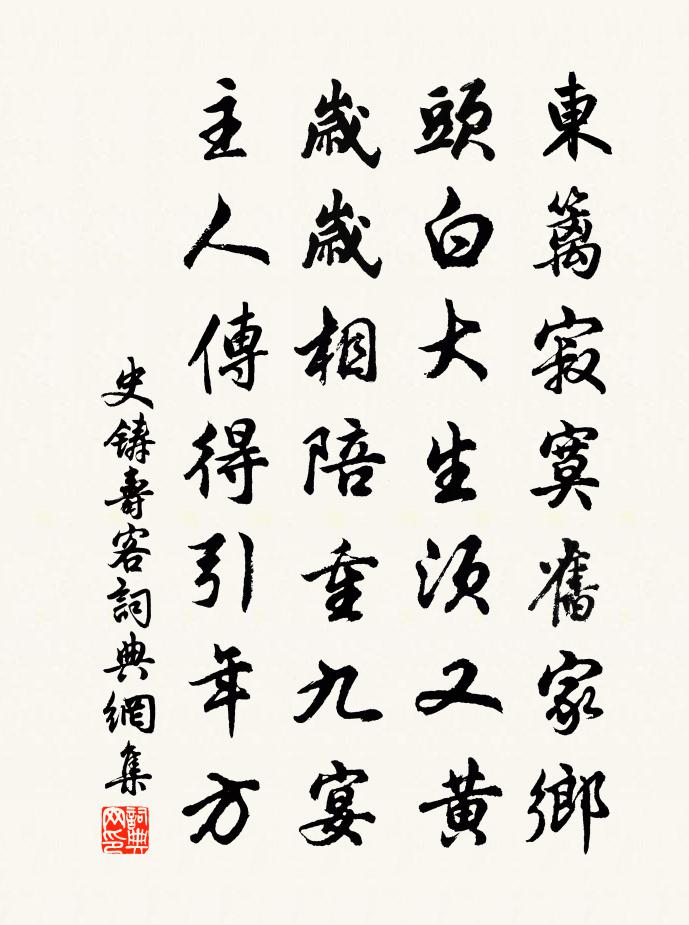 東籬寂寞舊家鄉
頭白大生須又黃
歲歲相陪重九宴
主人傳得引年方
史鑄壽客詞典網集
詞典网印